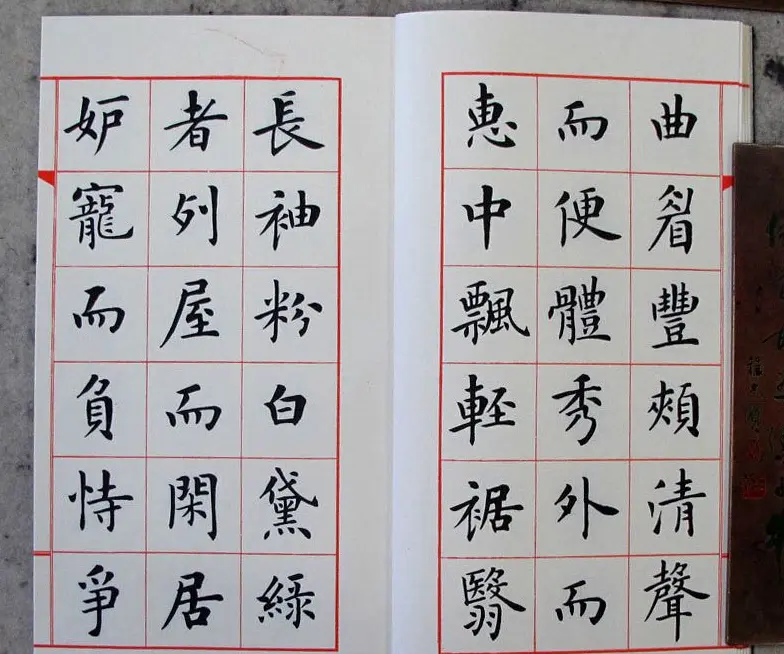 曲眉豐頰清聲
而便體秀外而
惠中飄輕裾翳
長袖粉白黛綠
者列屋而閑居
妒寵而負恃爭